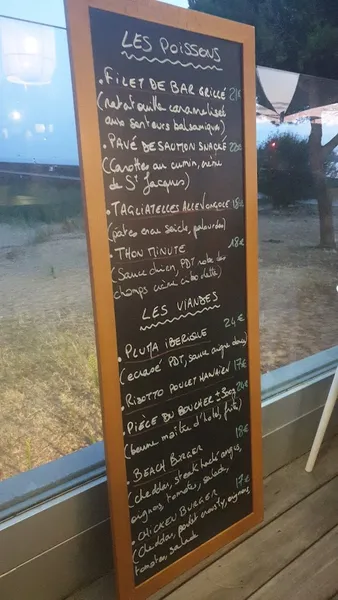 LES POISSONS
• FILET DE BAR GRILLÉ 21€
(ratatouille caramélisée
aux senteurs balsamique)
• PAVÉ DE SAUMON SNACKÉ 22€
(Carottes au cumin, crème
de St Jacques)
• TAGLIATELLES ALLE VONGOLE 18€
(pâtes encre seiche, palourdes)
• THON MINUTE 18€
(Sauce chien, PDT robe des
champs crème ciboulette)
LES VIANDES
• PLUMA IBERIQUE 24€
(écrasé PDT, sauce aigre douce)
• RISOTTO POULET 17€
• PIÈCE DU BOUCHER ± 300g 24€
(beurre maître d'hôtel, frite)
• BEACH BURGER 18€
(cheddar, steak haché angus,
oignons, tomates, salade,
• CHICKEN BURGER 17€
(Cheddar, poulet crousty, oignons,
tomates, salade